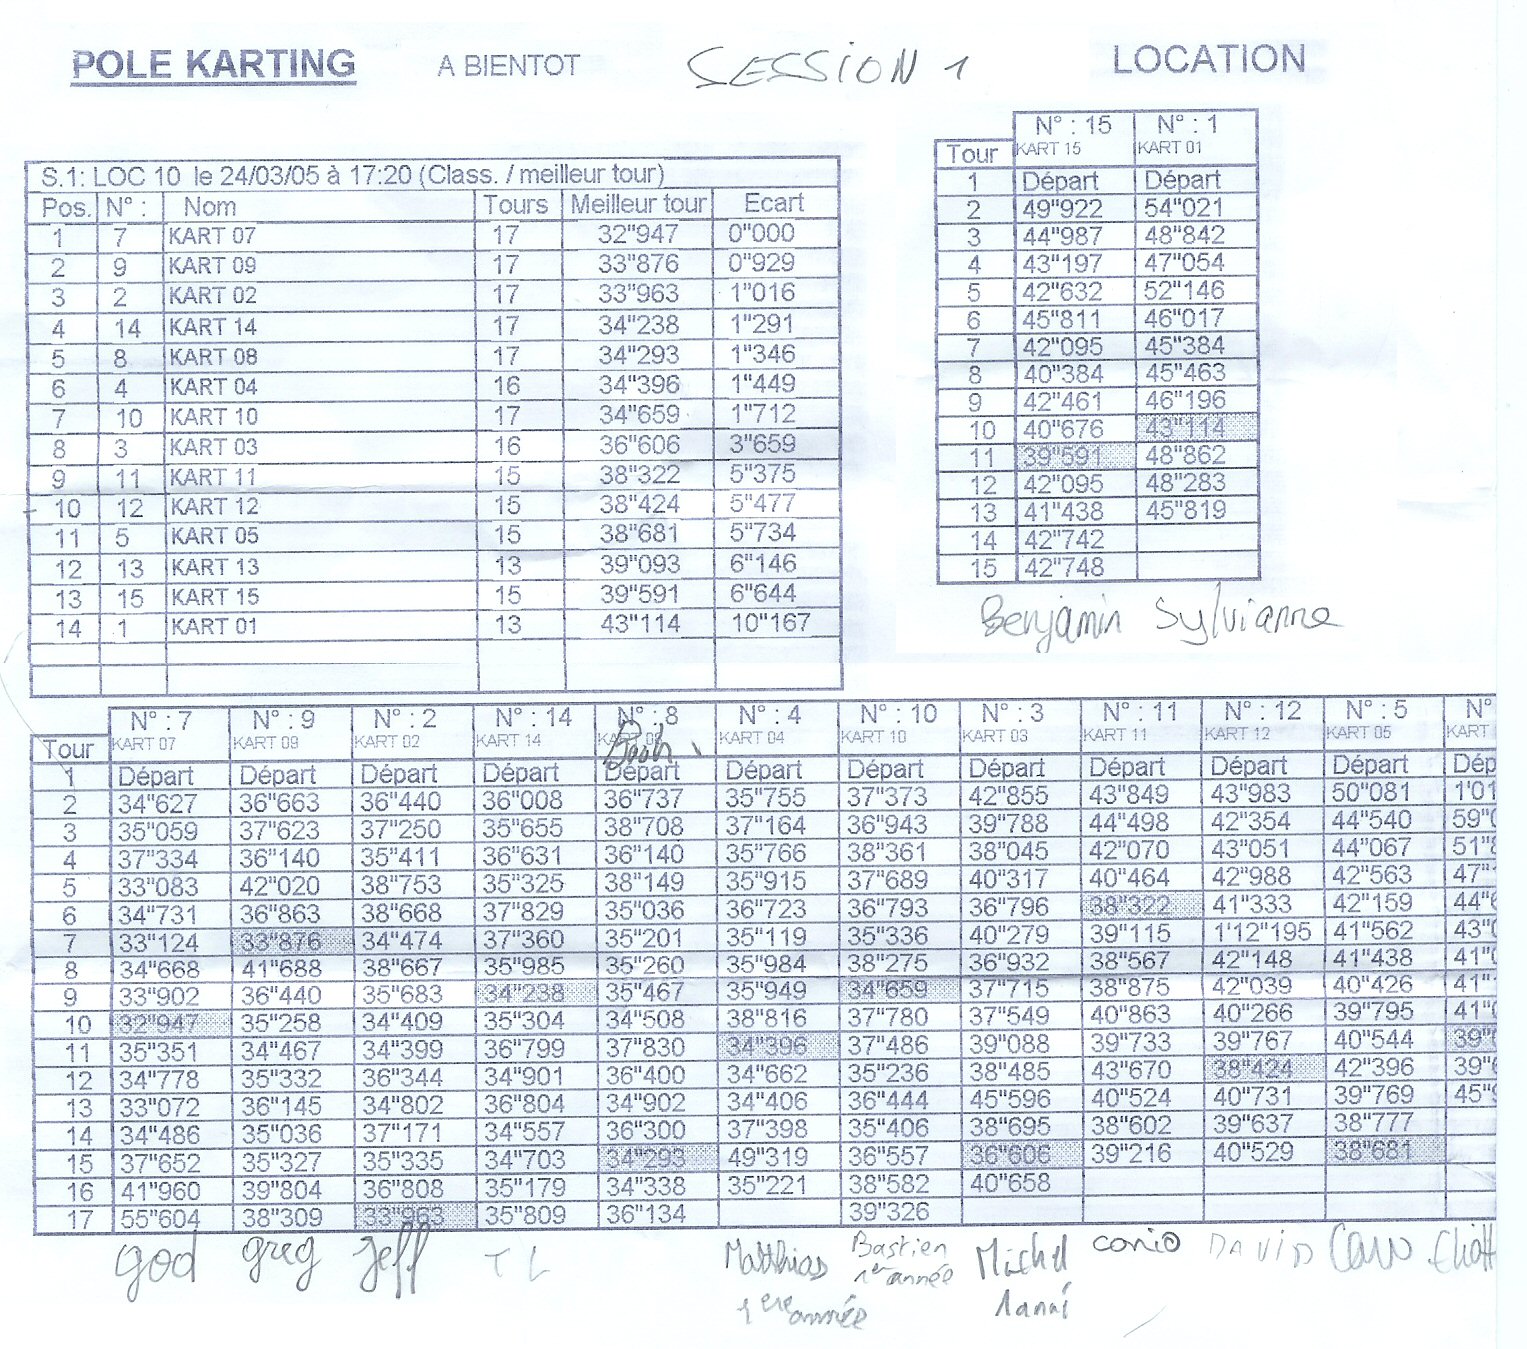 POLE KARTING A BIENTOT SESSION 1 LOCATION
S.1: LOC 10 le 24/03/05 à 17:20 (Class. / meilleur tour)
Pos. N° : Nom Tours Meilleur tour Ecart
1 7 KART 07 17 32"947 0"000
2 9 KART 09 17 33"876 0"929
3 2 KART 02 17 33"963 1"016
4 14 KART 14 17 34"238 1"291
5 8 KART 08 17 34"293 1"346
6 4 KART 04 16 34"396 1"449
7 10 KART 10 17 34"659 1"712
8 3 KART 03 16 36"606 3"659
9 11 KART 11 15 38"322 5"375
10 12 KART 12 15 38"424 5"477
11 5 KART 05 15 38"681 5"734
12 13 KART 13 13 39"093 6"146
13 15 KART 15 15 39"591 6"644
14 1 KART 01 13 43"114 10"167
N° : 15 N° : 1
Tour KART 15 KART 01
1 Départ Départ
2 49"922 54"021
3 44"987 48"842
4 43"197 47"054
5 42"632 52"146
6 45"811 46"017
7 42"095 45"384
8 40"384 45"463
9 42"461 46"196
10 40"676 43"114
11 39"591 48"862
12 42"095 48"283
13 41"438 45"819
14 42"742
15 42"748
Benjamin Sylvianne
N° : 7 N° : 9 N° : 2 N° : 14 N° : 8 N° : 4 N° : 10 N° : 3 N° : 11 N° : 12 N° : 5 N°
Tour KART 07 KART 09 KART 02 KART 14 KART 04 KART 10 KART 03 KART 11 KART 12 KART 05 KART
1 Départ Départ Départ Départ Départ Départ Départ Départ Départ Départ Départ Dép
2 34"627 36"663 36"440 36"008 36"737 35"755 37"373 42"855 43"849 43"983 50"081 1'01
3 35"059 37"623 37"250 35"655 38"708 37"164 36"943 39"788 44"498 42"354 44"540 59"0
4 37"334 36"140 35"411 36"631 36"140 35"766 38"361 38"045 42"070 43"051 44"067 51"8
5 33"083 42"020 38"753 35"325 38"149 35"915 37"689 40"317 40"464 42"988 42"563 47"
6 34"731 36"863 38"668 37"829 35"036 36"723 36"793 36"796 38"322 41"333 42"159 44"6
7 33"124 33"876 34"474 37"360 35"201 35"119 35"336 40"279 39"115 1'12"195 41"562 43"0
8 34"668 41"688 38"667 35"985 35"260 35"984 38"275 36"932 38"567 42"148 41"438 41"0
9 33"902 36"440 35"683 34"238 35"467 35"949 34"659 37"715 38"875 42"039 40"426 41"
10 32"947 35"258 34"409 35"304 34"508 38"816 37"780 37"549 40"863 40"266 39"795 41"0
11 35"351 34"467 34"399 36"799 37"830 34"396 37"486 39"088 39"733 39"767 40"544 39"0
12 34"778 35"332 36"344 34"901 36"400 34"662 35"236 38"485 43"670 38"424 42"396 39"6
13 33"072 36"145 34"802 36"804 34"902 34"406 36"444 45"596 40"524 40"731 39"769 45"9
14 34"486 35"036 37"171 34"557 36"300 37"398 35"406 38"695 38"602 39"637 38"777
15 37"652 35"327 35"335 34"703 34"293 49"319 36"557 36"606 39"216 40"529 38"681
16 41"960 39"804 36"808 35"179 34"338 35"221 38"582 40"658
17 55"604 38"309 33"963 35"809 36"134 39"326
god greg Jeff TL Matthias Bastien Michel conio DAVID Caro Eliott
1ere année 1er année 1anné